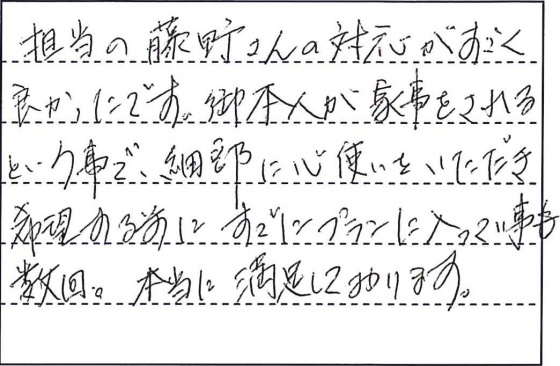 担当の藤野さんの対応がすごく
良かったです。御本人が家事をされる
という事で、細部に心使いをいただき
希望する前にすでにプランに入っている事も
数回。本当に満足しております。